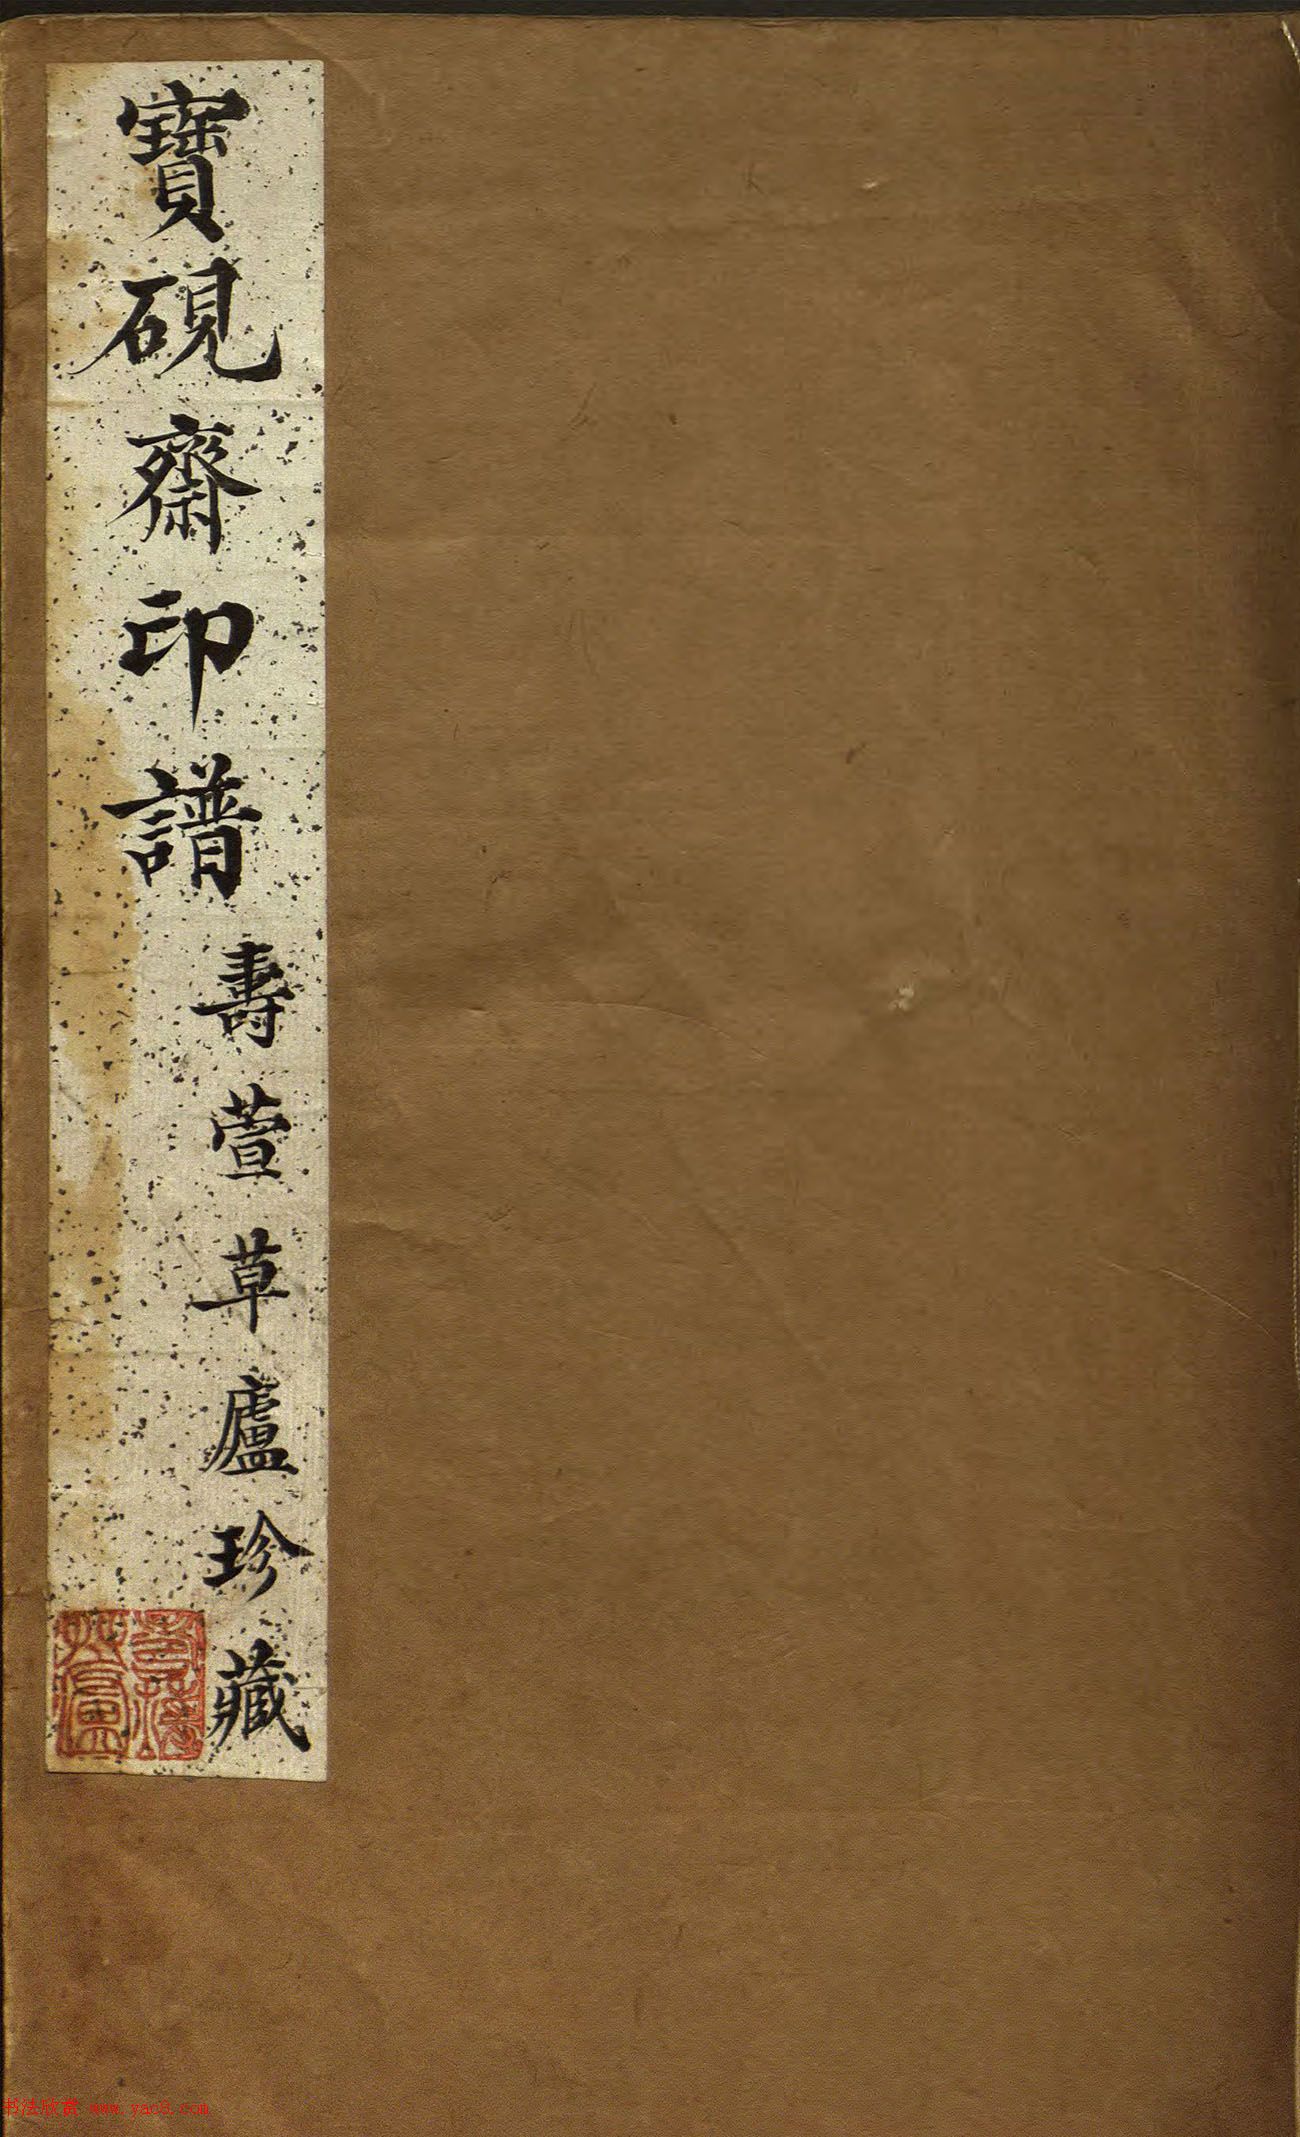 寶硯齋印譜
壽萱草廬珍藏
书法欣赏 www.yac8.com